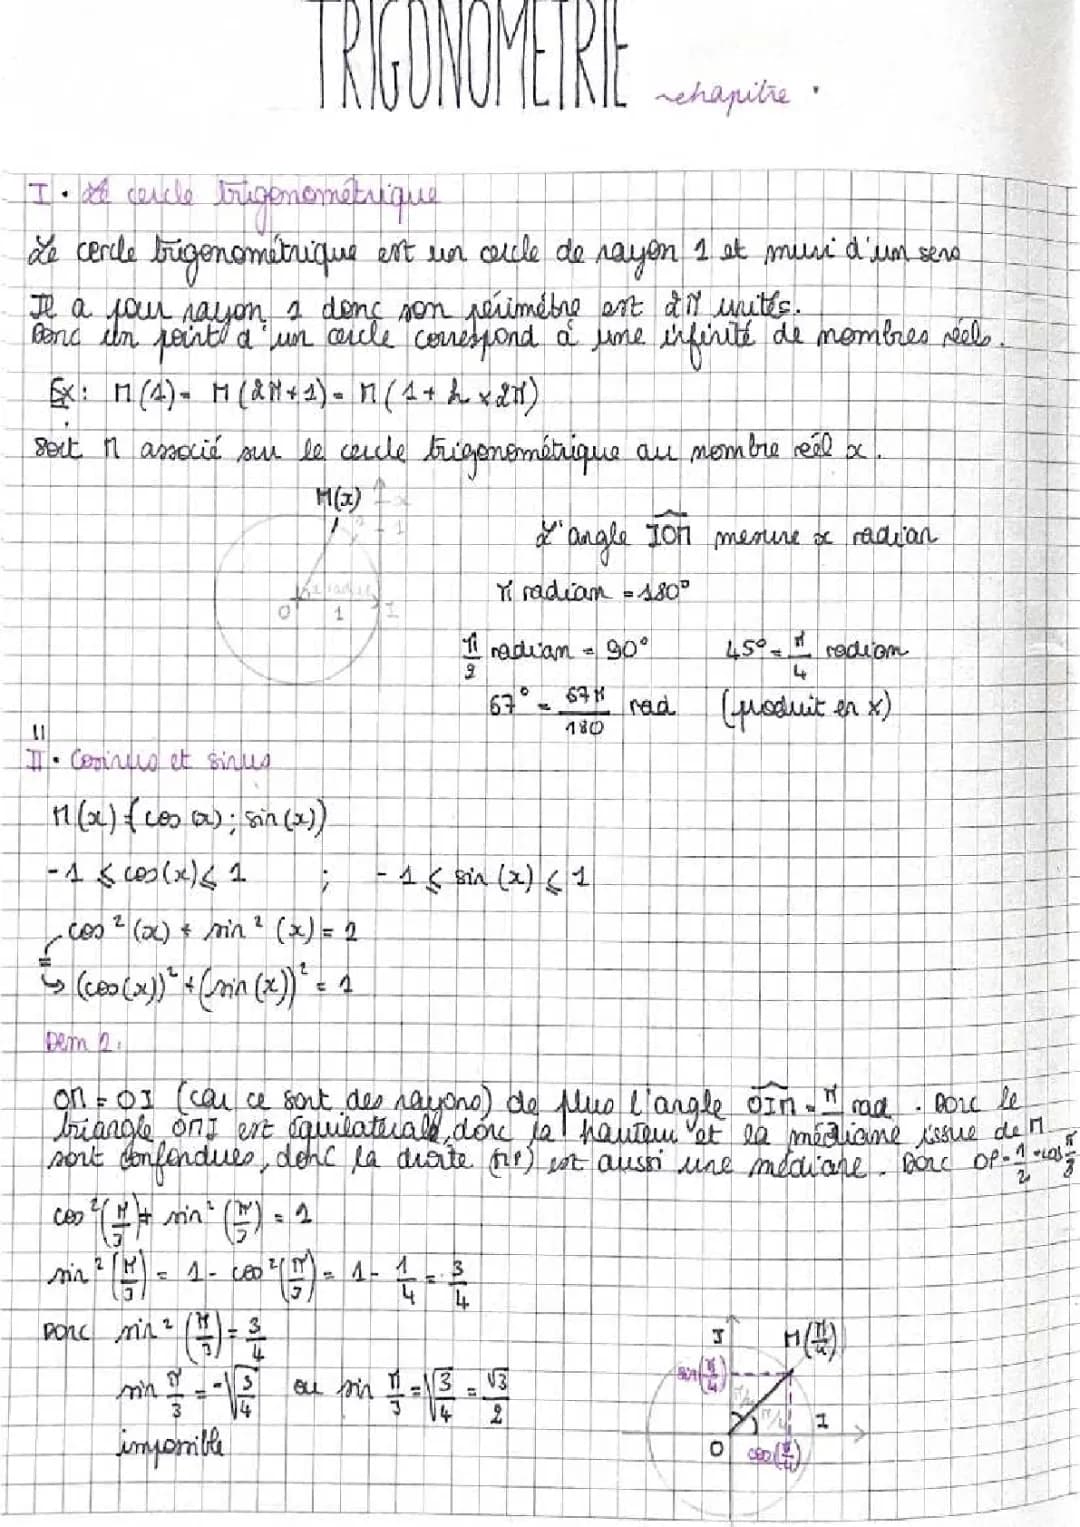 TRIGONOMETRIE
~chapitre
I. Le cercle trigonométrique
Le cercle trigonométrique est un cercle de rayon 1 et muni d'un sens
Il a pour rayon 1 donc son périmètre est 2π unités.
Donc un point d'un cercle correspond à une infinité de nombres réels.
Ex: M(1) = M(2π+1) = M(1+k×2π)
Soit M associé sur le cercle trigonométrique au nombre réel x.
M(x)
O 1 I
L'angle IOM mesure x radian
π radian = 180°
π/2 radian = 90° 45° = π/4 radian
67° = 67π/180 rad (produit en x)
II. Cosinus et sinus
M(x) (cos(x); sin(x))
-1 ⩽ cos(x) ⩽ 1 ; -1 ⩽ sin(x) ⩽ 1
cos²(x) + sin²(x) = 1
= ↳ (cos(x))² + (sin(x))² = 1
Dem 2.
OM = OI (car ce sont des rayons) de plus l'angle OIM = π/3 rad. Donc le
triangle OMI est équilatérale, donc la hauteur et la médiane issue de M
sont confondues, donc la droite (MP) est aussi une médiane. Donc OP = 1/2 = cos π/3
cos²(π/3) + sin²(π/3) = 1
sin²(π/3) = 1 - cos²(π/3) = 1 - 1/4 = 3/4
Donc sin²(π/3) = 3/4
sin π/3 = -√(3/4) ou sin π/3 = √(3/4) = √3/2
impossible
J M(π/4)
sin(π/4)
I
O cos(π/4)